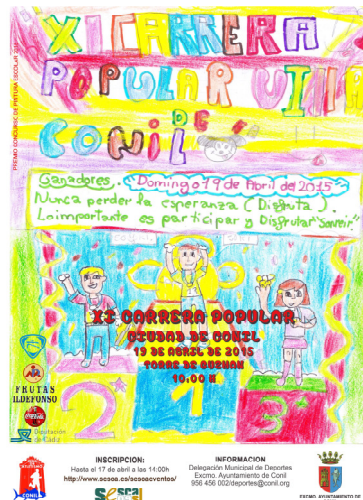 XI CARRERA
POPULAR VILLA
DE
CONIL
PREMIO CONCURSO DE PINTURA ESCOLAR
Ganadores. "Domingo 19 de Abril del 2015"
Nunca perder la esperanza (Disfruta).
Lo importante es participar y Disfrutar "Sonreir"
XI CARRERA POPULAR
CIUDAD DE CONIL
19 DE ABRIL DE 2015
TORRE DE GUZMAN
10:00 H
2 1 3
FRUTAS
ILDEFONSO
Coca-Cola
Diputación
de Cádiz
CONIL
INSCRIPCION:
Hasta el 17 de abril a las 14:00h
INFORMACION
Delegación Municipal de Deportes
Excmo Ayuntamiento de Conil
956 456 002/deportes@conil.org
EXCMO. AYUNTAMIENTO DE